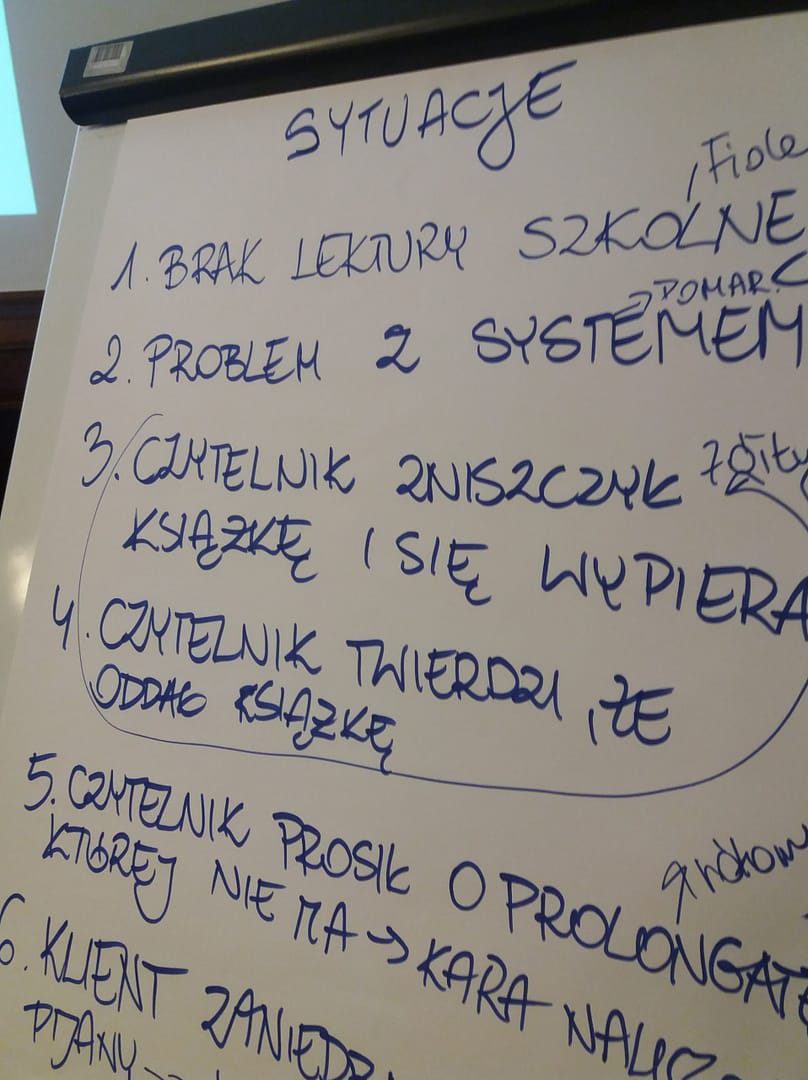 SYTUACJE
, Fiole
1. BRAK LEKTURY SZKOLNE
→ POMAR.
2. PROBLEM Z SYSTEMEM
3. CZYTELNIK ZNISZCZYŁ żółty
KSIĄŻKĘ I SIĘ WYPIERA
4. CZYTELNIK TWIERDZI, ŻE
ODDAŁ KSIĄŻKĘ
5. CZYTELNIK PROSIŁ O PROLONGATĘ
KTÓREJ NIE MA → KARA NALICZ
6. KLIENT ZANIEDB
PIJANY →